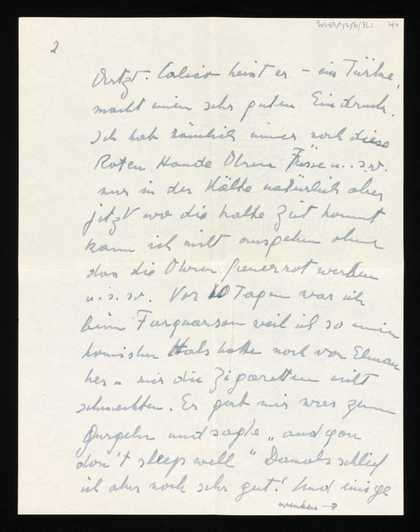 2
Arzt. Calico heist er – ein Türke,
macht einen sehr guten Eindruck.
Ich hab nämlich immer noch diese
Roten Hände Ohren Füsse u.. s.w.
nur in der Kälte natürlich aber
jetzt wo die kalte Zeit kommt
kann ich nicht ausgehen ohne
das die Ohren feuerrot werden
u.s.w. Vor 10 Tagen war ich
beim Farquarson weil ich so einen
komischen Hals hatte noch von
her u mir die Zigaretten nicht
schmeckten. Er gab mir was zum
Gurgeln und sagte „and you
don't sleep well" Damals schlief
ich aber noch sehr gut! Und einige
wenden →